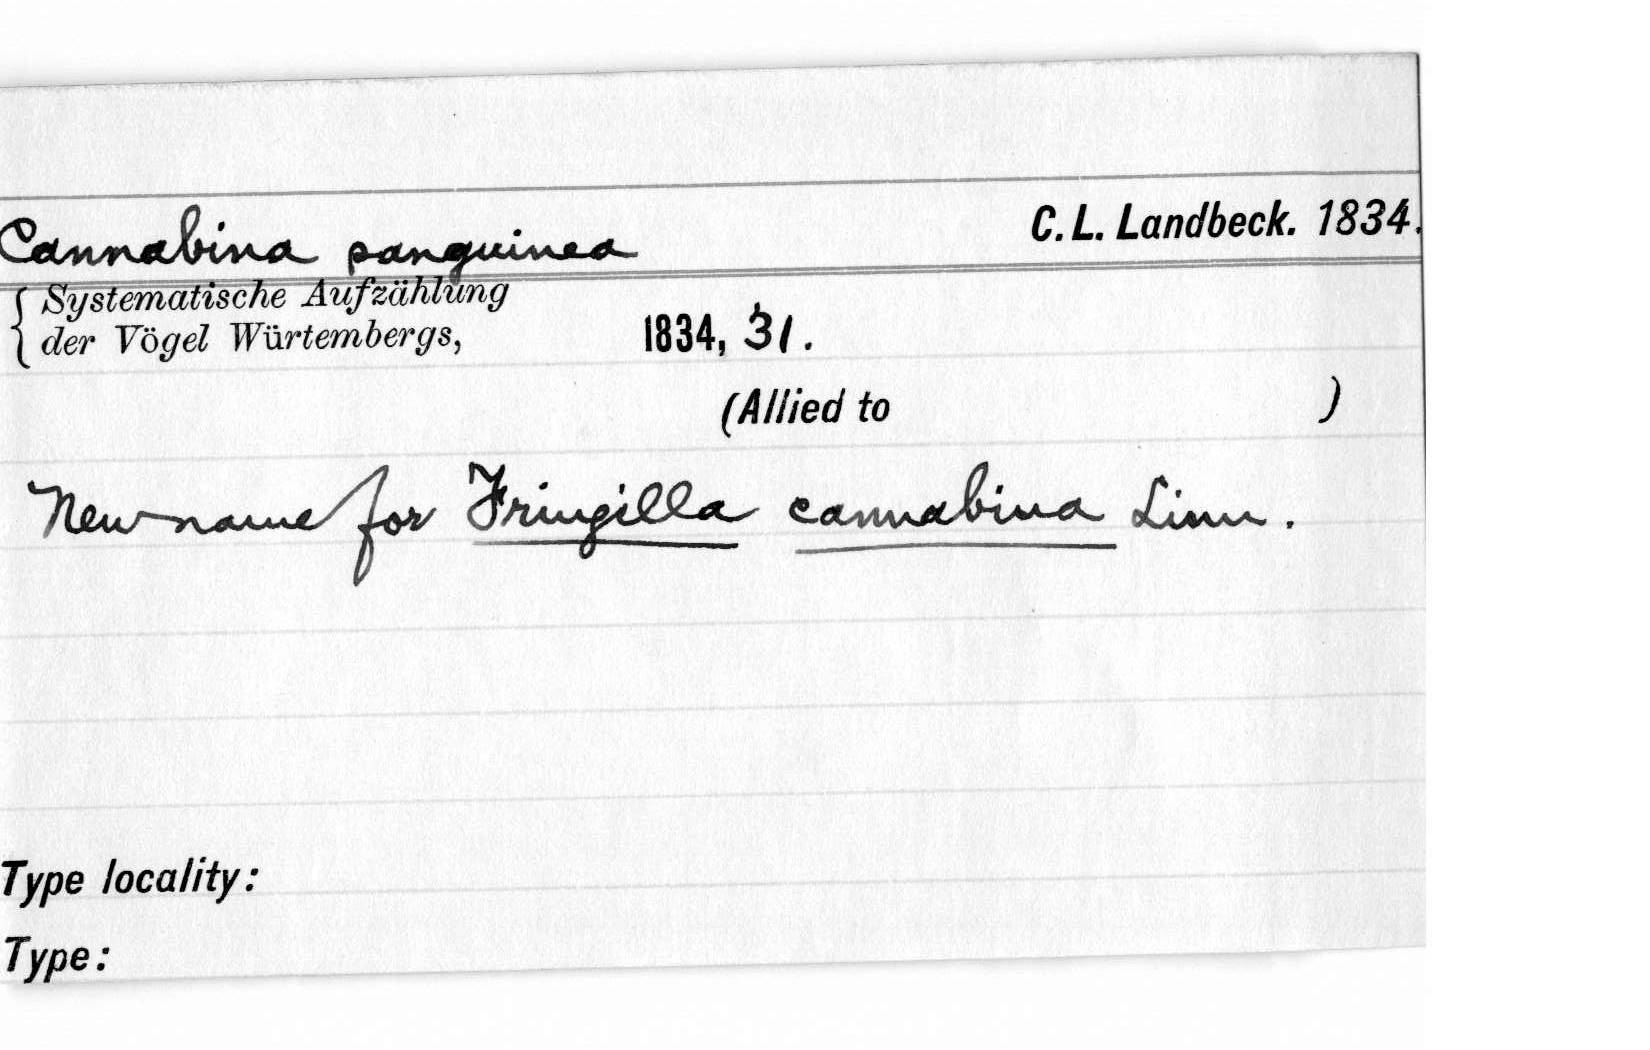 Cannabina sanguinea C. L. Landbeck. 1834.
{ Systematische Aufzählung
der Vögel Würtembergs, 1834, 31.
(Allied to )
New name for Fringilla cannabina Linn.
Type locality:
Type: